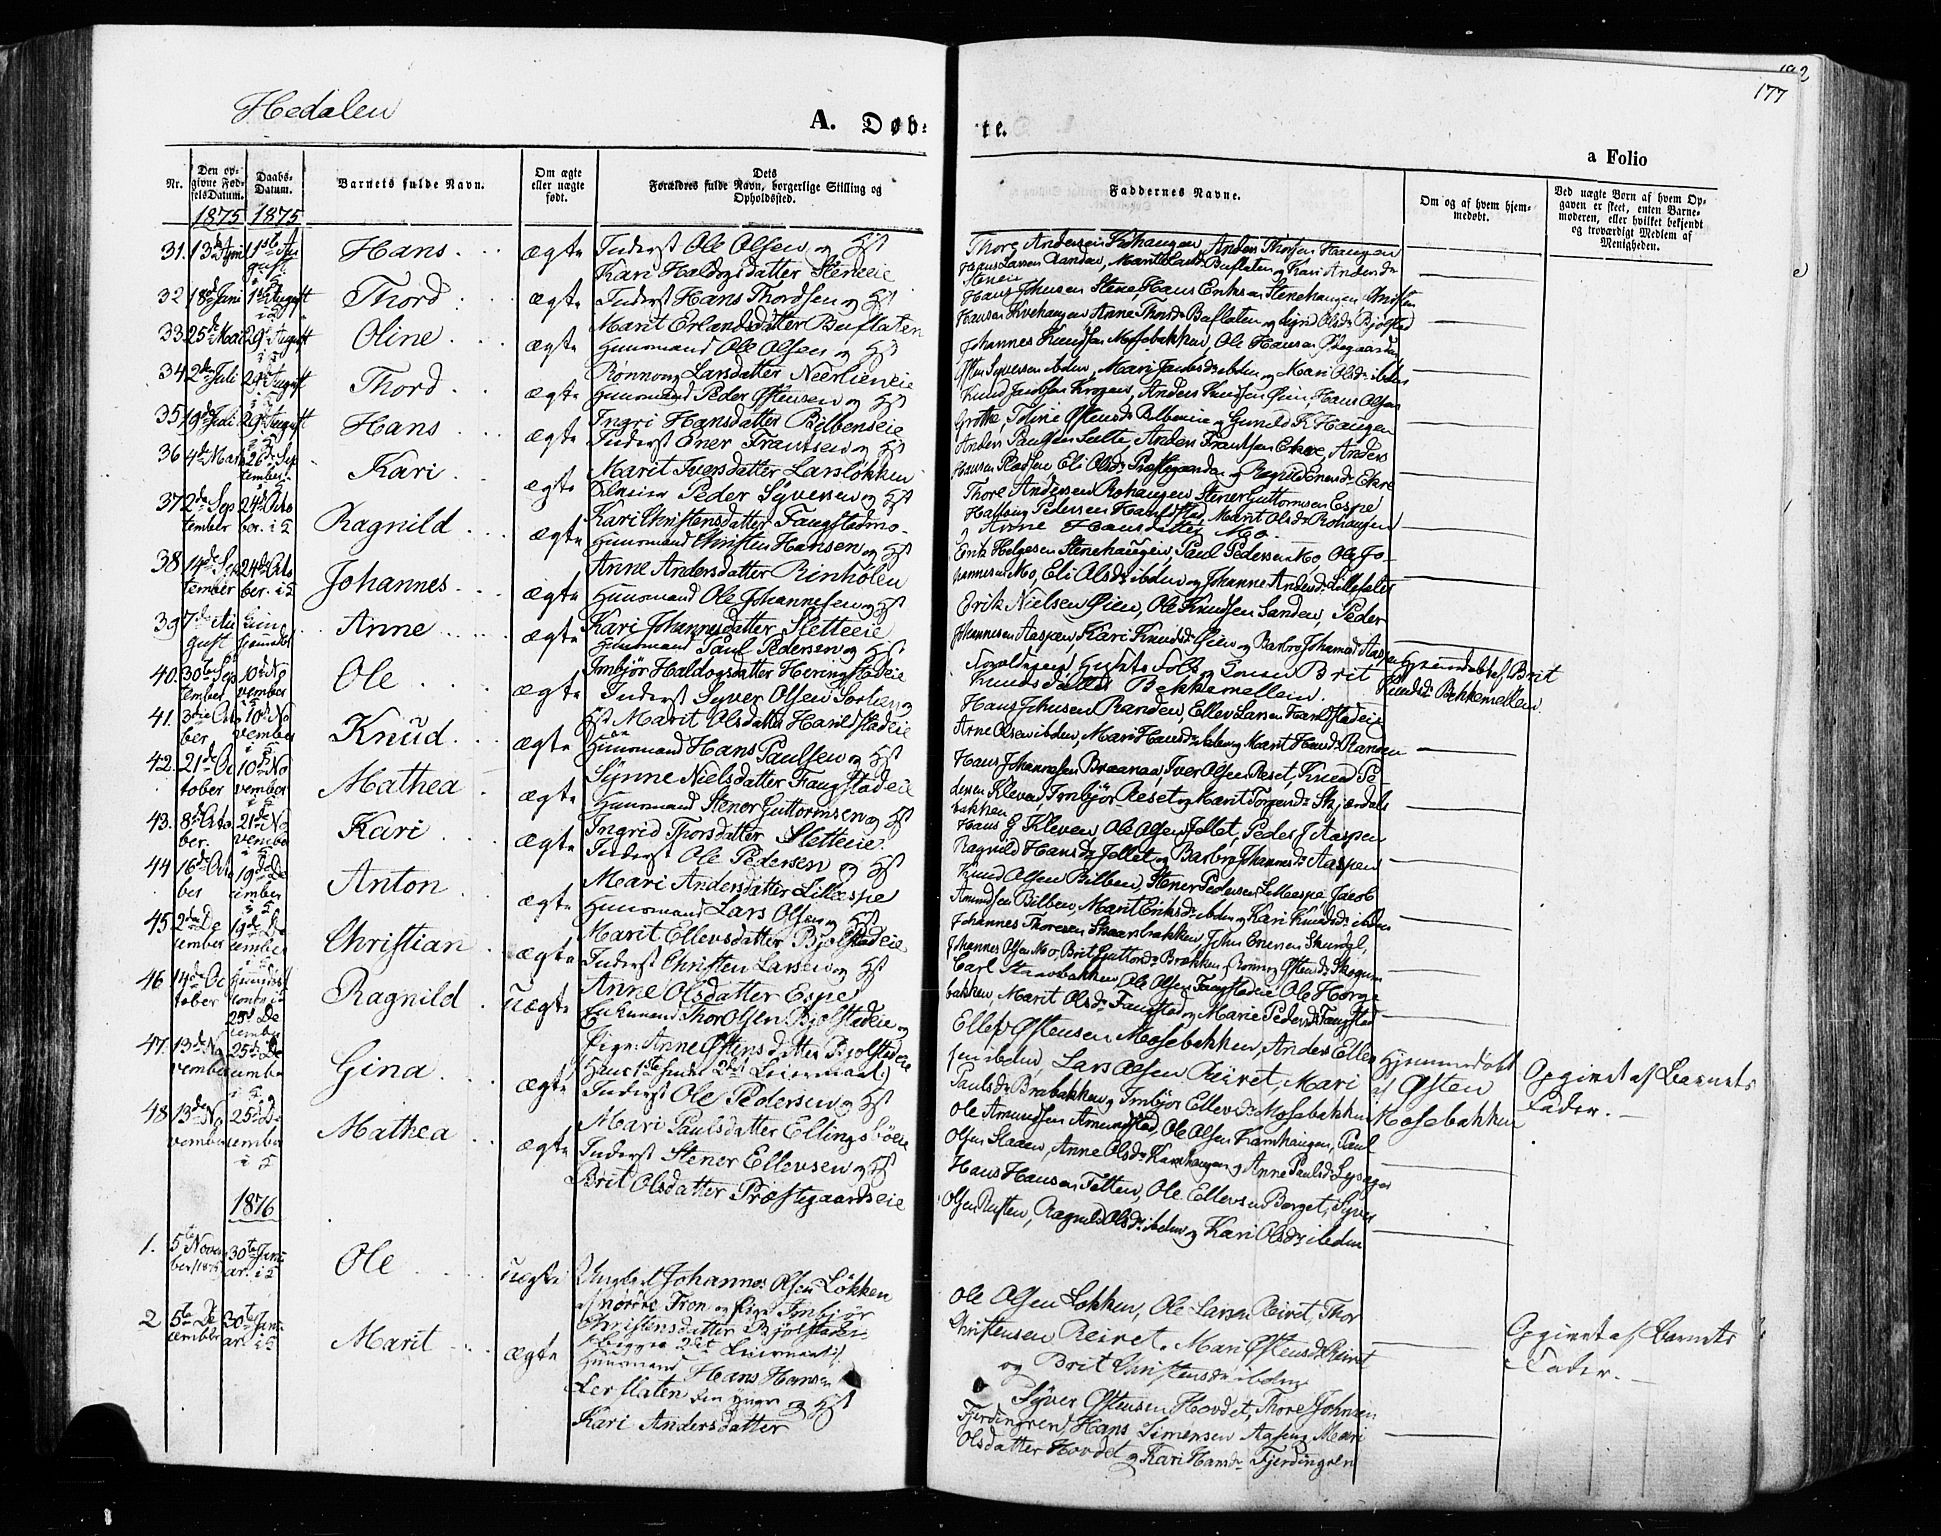 Hedalen
A. Døb-
te.
192
177
a Folio
Nr.
Den op-
givne Fød-
selsDatum.
1875
Daabs-
Datum.
1875
Barnets fulde Navn.
Om ægte
eller uægte
født.
Dets
Forældres fulde Navn, borgerlige Stilling og
Opholdssted.
Faddernes Navne.
Om og af hvem hjem-
medøbt.
Ved uægte Børn af hvem Op-
gaven er skeet, enten Barne-
moderen, eller hvilket bekjendt
og troværdigt Medlem af
Menigheden.
31. 13de Juni 1ste August Hans ægte Inderst Ole Olsen og Hst
Kari Haldogsdatter Steneeie
Thore Andersen Rohaugen, Anders Thorsen Haugen
Hans Larsen Randen, Marit Buflaten og Kari Andersdr
Steneeie
32 18de Juni 1ste August Thord ægte Inderst Hans Thordsen og Hst
Marit Erlandsdatter Buflaten
Hans Johnsen Stene, Hans Eriksen Stenehaugen, Christen
Hansen Kvehaugen Anne Thorsdr Buflaten og Sigrid Olsdr Bjølstad
33. 25de Mai 29de August Oline ægte Huusmand Ole Olsen og Hst
Rønnoug Larsdatter Neerlieneie
Johannes Knudsen Mosebakken, Ole Hansen
Syversen ibden, Mari Jacobsdr ibden og Mari Olsdr ibden
34. 2den Juli 29de August Thord ægte Huusmand Peder Østensen og Hst
Ingri Hansdatter Bilbenseie
Knud Jacobsen Krogen, Anders Knudsen Øien, Hans Olsen
Grøthe, Oline Østensdr Bilbeneie og Gunild K Haugen
35. 19de Juli 29de August Hans ægte Inderst Ener Frantsen og Hst
Marit Iversdatter Larsløkken
Anders Paulsen Sælte, Anders Frantsen Ekre, Anders
Hansen Eli Olsdr Præstegaarden og Ragnild Enersdr Ekre
36 4de Marts 26de September Kari ægte Peder Syversen og Hst
Kari Christensdatter Faugstadmo
Thore Andersen Rohaugen Stener Guttormsen Espe
Pedersen Marit Olsdr Rohaugen
og Anne Hansdatter Mo
37. 2den September 24de October i 2 Ragnild ægte Huusmand Christen Hansen og Hst
Anne Andersdatter Rinholen
Erik Helgesen Stenehaugen, Paul Pedersen Mo, Ole Jo-
hannesen Mo, Eli Olsdr ibden og Johanne Andersdr Lillehalet
38 14de September 24de October i 2 Johannes ægte Huusmand Ole Johannesen og Hst
Kari Johannesdatter Sletteeie
Erik Nielsen Øien, Ole Knudsen Sanden, Peder
Johannesen Aaspen, Kari Knudsdr Øien og Barbro Johannesdr Aaspen
39 7de August Anne ægte Huusmand Paul Pedersen og Hst
Imbjør Haldogsdatter Heringstadeie
Forældrene, Hustes Folk og Konen Brit
Knudsdatter Bekkemellem
Hjemmedøbt af Brit
Knudsdr Bekkemellem.
40. 30te September 10de November Ole ægte Inderst Syver Olsen Sørlien og
Hst Marit Olsdatter Harildstadeie
Hans Johnsen Randen, Ellev Larsen Harildstadeie
Arne Olsen ibden, Mari Hansdr ibden og Marit Hansdr Randen
41. 3die October 10de November Knud ægte Huusmand Hans Paulsen og Hst
Synne Nielsdatter Faugstadeie
Hans Johannesen Braanaa, Iver Olsen Reset, Knud Pe-
dersen Kleven, Imbjør Reset og Marit Torgersdr Skjærdals
bakken
42. 21de October 10de November Mathea ægte Huusmand Stener Guttormsen og Hst
Ingrid Thorsdatter Sletteeie
Hans G Kleven Ole Olsen Jellet, Peder J Aaspen
Ragnild Hansdr Jellet og Barbro Johannesdr Aaspen
43. 8de October 21de November Kari ægte Inderst Ole Pedersen og Hst
Mari Andersdatter Lilleespe
Knud Olsen Bilben, Stener Pedersen Lilleespe, Jacob
Amundsen Bilben, Marit Eriksdr ibden og Kari Knudsdr ibden
44 16de October 19de December i 5 Anton ægte Huusmand Lars Olsen og Hst
Marit Ellevsdatter Bjølstadeie
Johannes Thoresen Skaarbakken, John Enersen Skundal
Johannes Olsen Mo, Brit Guttormsdr Brækken, Rønnoug Østensdr Skogum
45. 2den December 19de December Christian ægte Inderst Christen Larsen og Hst
Anne Olsdatter Espe
Carl Staavbakken, Ole Olsen Faugstadeie Ole Horge-
bakken, Marit Olsdr Faugstad og Marie Pedersdr Faugstad
46 14de October 25de December Ragnild uægte Enkemand Thor Olsen Bjølstadeie og
Pige Anne Østensdatter Bjølstadeie
Ellef Østensen Mosebakken, Anders Ellef-
sen ibden, Lars Olsen Reiret, Mari
Paulsdr Brabakken og Imbjør Ellevsdr Mosebakken
Hjemmedøbt
af Østen
Mosebakken
Opgivet af Barnets
Fader.
47. 13de November 25de December i 2 Gina ægte Inderst Ole Pedersen og Hst
Mari Paulsdatter Ellingsbøeie
Ole Amundsen Amundstad, Ole Olsen Kamhaugen, Paul
Olsen Staaen, Anne Olsdr Kamhaugen og Anne Paulsdr
48 13de November 25de December i 5 Mathea ægte Inderst Stener Ellevsen og Hst
Brit Olsdatter Præstegaardseie
Hans Hansen Tetten, Ole Ellevsen Berget, Syver
Olsen Rusten, Ragnild Olsdr ibden og Kari Olsdr ibden
1876
1. 5te November 1875 30te Januar i 5 Ole uægte Ungkarl Johannes Olsen Løkken
af nordre Fron og Pige Imbjør
Christensdatter Bjølstadeie
Begges 2det Leiermaal
Ole Olsen Løkken, Ole Larsen Reiret, Thor
Christensen Reiret, Mari Østensdr Reiret
og Brit Christensdr ibden
Opgivet af Barnets
Fader.
2 5te December 30te Januar i 5 Marit ægte Huusmand Hans Hansen
Lerflaten den yngre og Hst
Kari Andersdatter
Syver Østensen Hovdet, Thore Johnsen
Fjerdingren, Hans Simensen Aasen, Mari
Olsdatter Hovdet og Kari Hansdr Fjerdingren